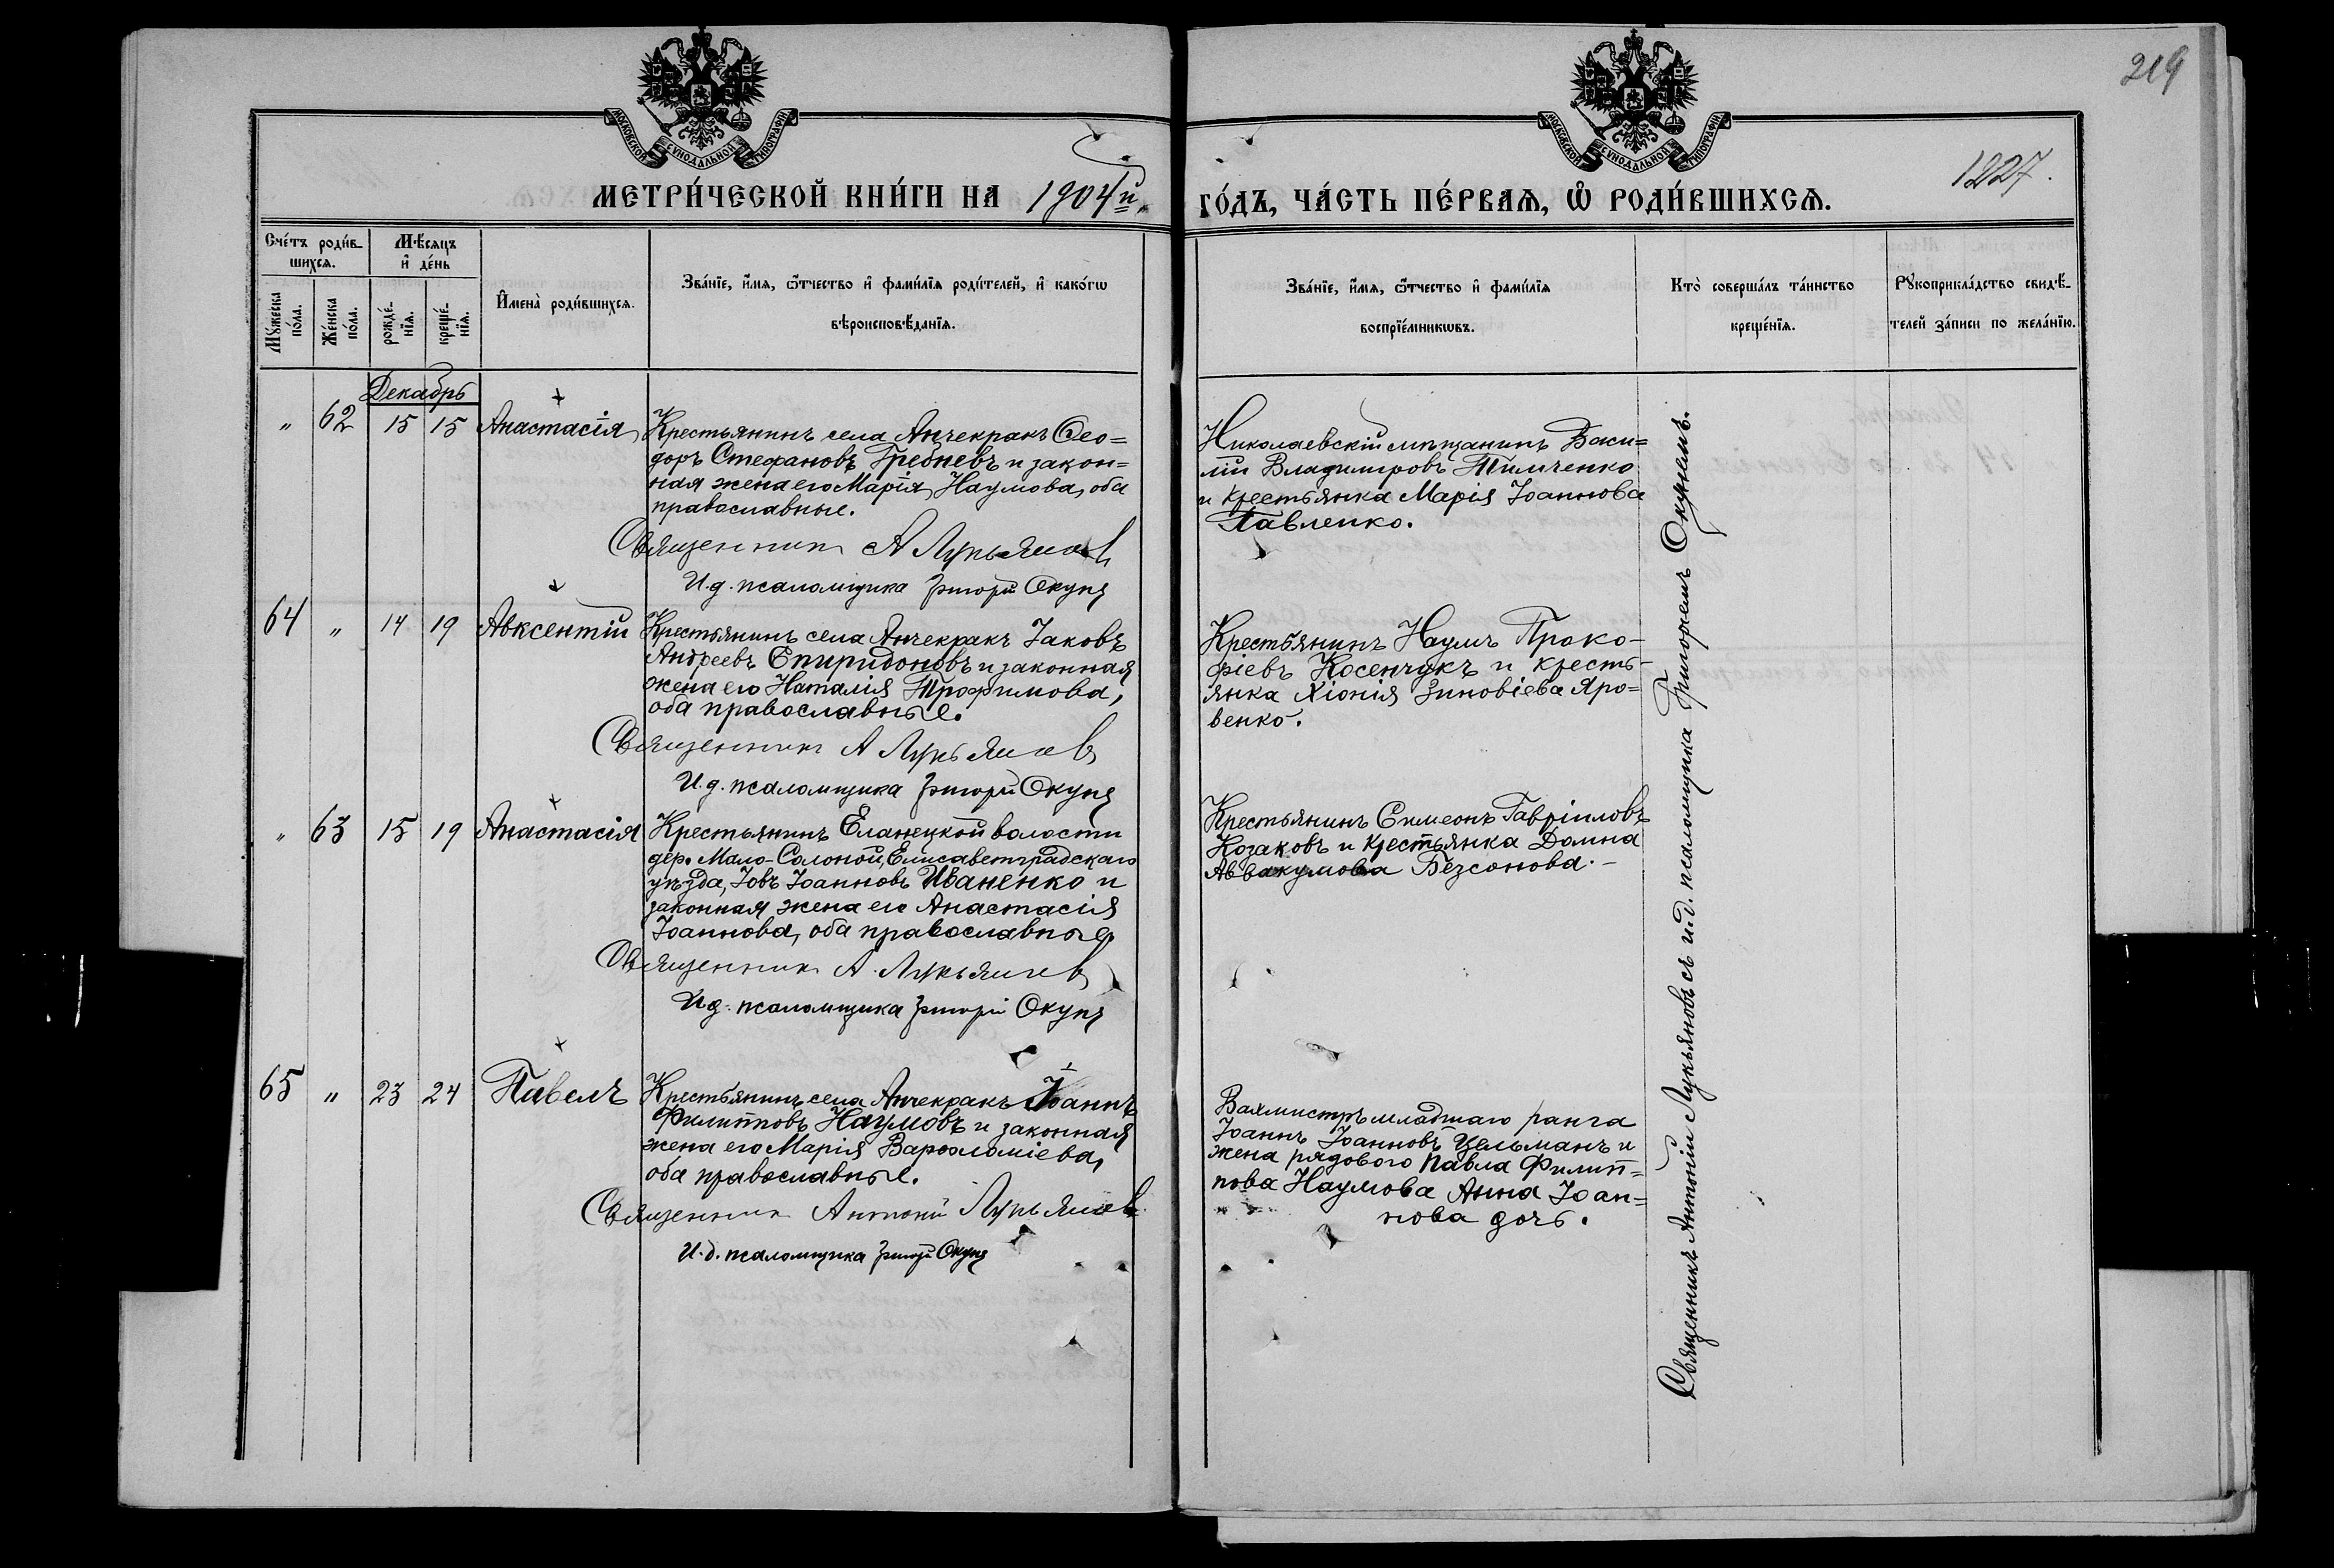 219
1227.
МОСКОВСКОЙ СѴНОДАЛЬНОЙ ТИПОГРАФІИ
МОСКОВСКОЙ СѴНОДАЛЬНОЙ ТИПОГРАФІИ
МЕТРИ́ЧЕСКОЙ КНИ́ГИ НА 1904й
ГО́ДЪ, ЧА́СТЬ ПЕ́РВАѦ, Ѡ҆ РОДИ́ВШИХСѦ.
Сче́тъ роди́в-
шихсѧ.
Мѣ́сяцъ
и҆ де́нь
Мꙋ́жеска
по́ла.
Же́нска
по́ла.
рожде́-
нїѧ.
креще́-
нїѧ.
И҆мена̀ роди́вшихсѧ.
Зва́нїе, и҆́мѧ, ѻ҆́тчество и҆ фами́лїѧ роди́телей, и҆ како́гѡ
вѣроисповѣ́данїѧ.
Зва́нїе, и҆́мѧ, ѻ҆́тчество и҆ фами́лїѧ
воспрїе́мникѡвъ.
Кто̀ соверша́лъ та́инство
креще́нїѧ.
Рꙋкоприкла́дство свидѣ́-
телей за́писи по жела́нїю.
Декабрь
" 62 15 15 Анастасія
Крестьянинъ села Анчекракъ Ѳео=
доръ Стефановъ Гребневъ и закон=
ная жена его Марія Наумова, оба
православные.
Священникъ А Лукьянов
И.д. псаломщика Григорій Окунь
Николаевскій мѣщанинъ Васи=
лій Владимировъ Тимченко
и крестьянка Марія Іоаннова
Павленко.
64 " 14 19 Авксентій
Крестьянинъ села Анчекракъ Іаковъ
Андреевъ Спиридоновъ и законная
жена его Наталія Трофимова,
оба православные.
Священникъ А Лукьянов
И.д. псаломщика Григорій Окунь
Крестьянинъ Наумъ Проко-
фіевъ Косенчукъ и кресть-
янка Хіонія Зиновіева Яро=
венко.
" 63 15 19 Анастасія
Крестьянинъ Еланецкой волости
дер. Мало-Солоной, Елисаветградскаго
уѣзда, Іовъ Іоанновъ Иваненко и
законная жена его Анастасія
Іоаннова, оба православные.
Священникъ А. Лукьянов
И.д. псаломщика Григорій Окунь
Крестьянинъ Симеонъ Гавріиловъ
Козаковъ и крестьянка Домна
Аввакумова Безсонова.-
65 " 23 24 Павелъ
Крестьянинъ села Анчекракъ Іоаннъ
Филипповъ Наумовъ и законная
жена его Марія Варѳоломіева,
оба православные.
Священникъ Антоній Лукьянов
И.д. псаломщика Григорій Окунь
Вахмистръ младшаго ранга
Іоаннъ Іоанновъ Цельманъ и
жена рядового Павла Филип=
пова Наумова Анна Іоан=
нова дочь.
Священникъ Антоній Лукьяновъ съ и.д. псаломщика Григоріемъ Окунемъ.